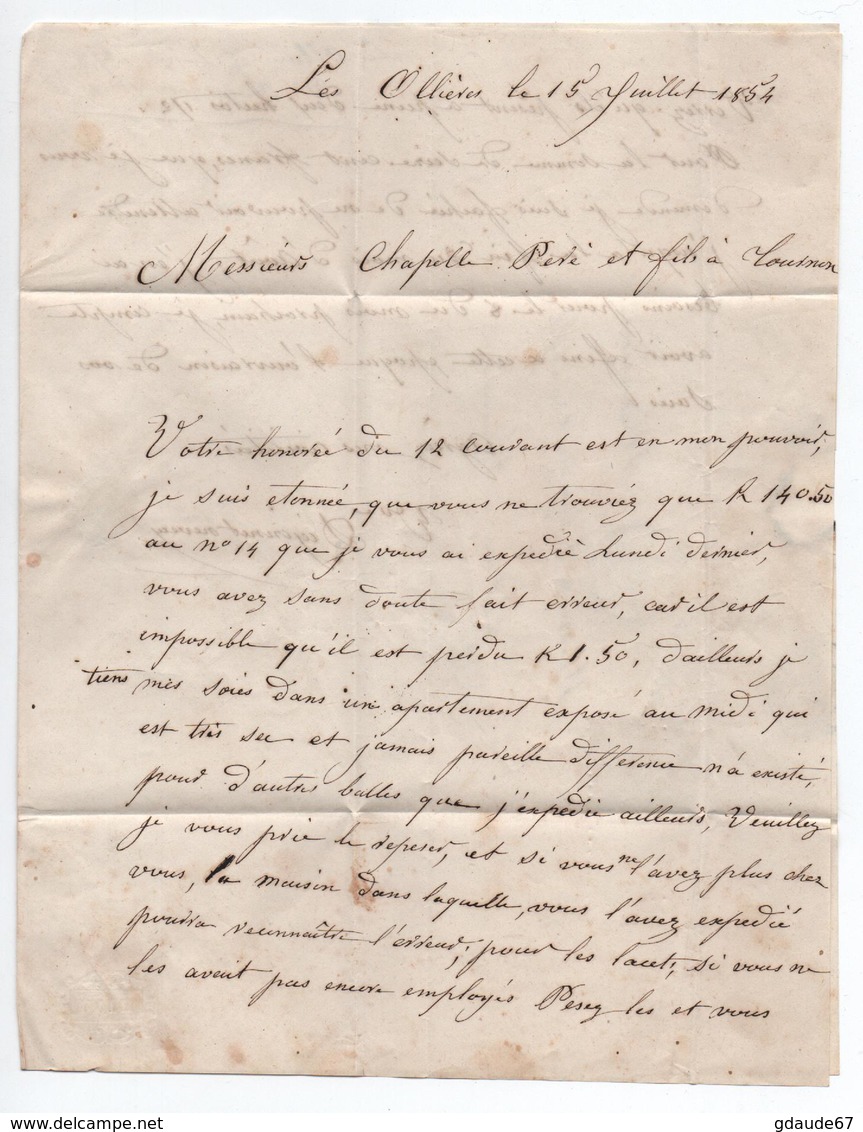 Les Ollières le 15 Juillet 1854
Messieurs Chapelle Peré et fils à Tournon
Votre honorée du 12 courant est en mon pouvoir,
je suis etonnée, que vous ne trouviez que K 140.50
au nº 14 que je vous ai expediè Lundi dernier,
vous avez sans doute fait erreur, car il est
impossible qu'il est perdu K 1.50, d'ailleurs je
tiens mes soies dans un apartement exposé au midi qui
est très sec et jamais pareille difference n'a existé,
pour d'autres balles que j'expedie ailleurs, Veuillez
je vous prie le repeser, et si vous ne l'avez plus chez
vous, la maison dans laquelle, vous l'avez expedié
pourra reconnaître l'erreur; pour les lacets, si vous ne
les avait pas encore employés Pesez les et vous
gdaude67